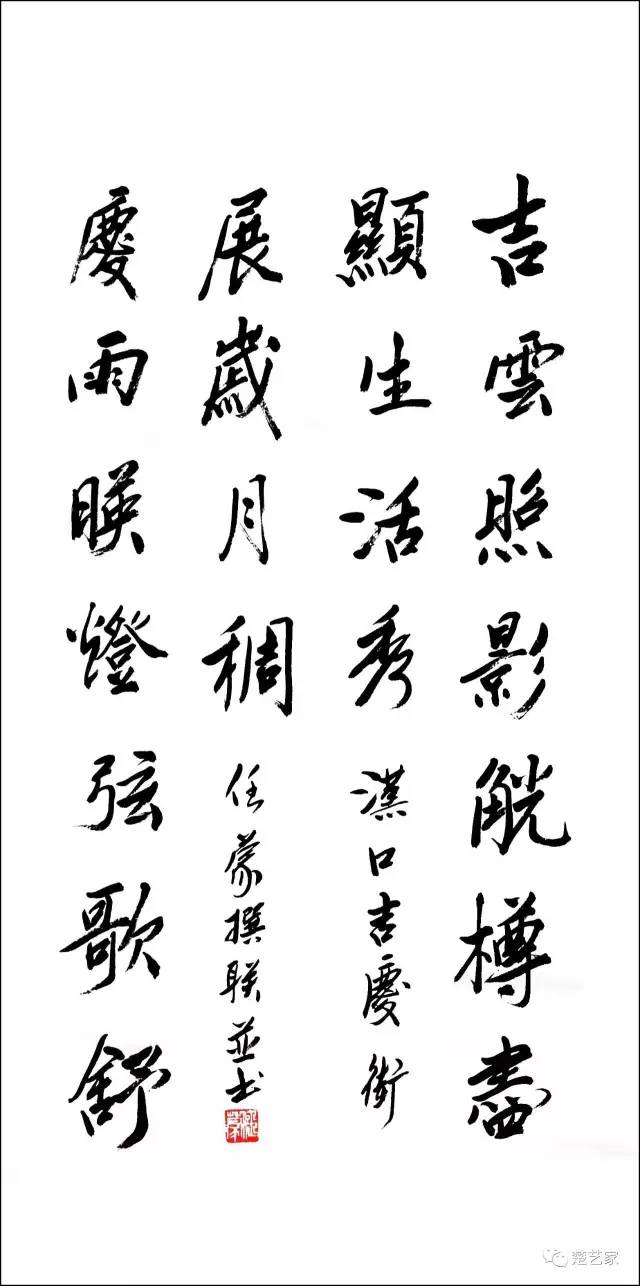 吉雲照影觥樽盡
顯生活秀
漢口吉慶街
慶雨暎燈弦歌舒
展歲月稠
任蒙撰联並书
楚艺家